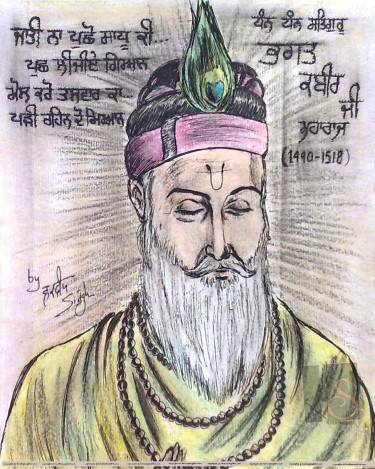 ਜਾਤੀ ਨਾ ਪੁਛੋ ਸਾਧੂ ਕੀ...
ਪੁਛ ਲੀਜੀਏ ਗਿਆਨ
ਮੋਲ ਕਰੋ ਤਲਵਾਰ ਕਾ...
ਪੜੀ ਰਹਿਨ ਦੋ ਮਿਆਨ
ਧੰਨ ਧੰਨ ਸਤਿਗੁਰੂ
ਭਗਤ
ਕਬੀਰ
ਜੀ
ਮਹਾਰਾਜ
(1440-1518)
by
Singh